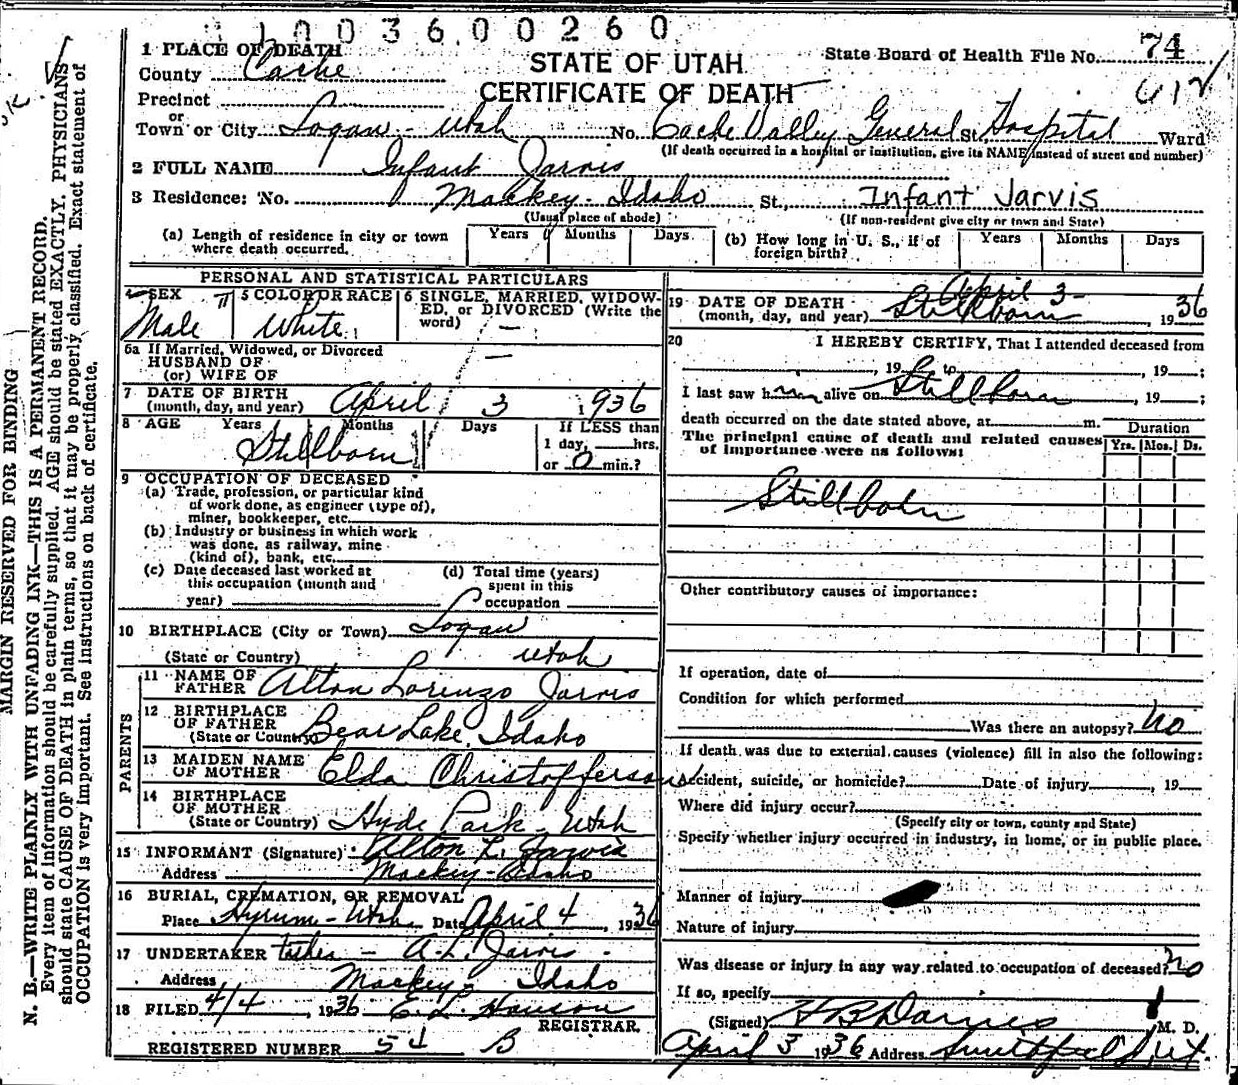 1003600260
1 PLACE OF DEATH
County Cache
STATE OF UTAH
State Board of Health File No. 74
CERTIFICATE OF DEATH
Precinct
or
Town or City Logan - Utah No. Cache Valley General St. Hospital Ward
(If death occurred in a hospital or institution, give its NAME instead of street and number)
2 FULL NAME Infant Jarvis
3 Residence: No. Mackey - Idaho St., Infant Jarvis
(Usual place of abode) (If non-resident give city or town and State)
(a) Length of residence in city or town where death occurred. Years Months Days (b) How long in U. S., if of foreign birth? Years Months Days
PERSONAL AND STATISTICAL PARTICULARS
4 SEX Male
5 COLOR OR RACE White
6 SINGLE, MARRIED, WIDOWED, or DIVORCED (Write the word) —
6a If Married, Widowed, or Divorced
HUSBAND OF
(or) WIFE OF —
7 DATE OF BIRTH
(month, day, and year) April 3 1936
8 AGE Years Months Days If LESS than
1 day, hrs.
Stillborn or 0 min.?
9 OCCUPATION OF DECEASED
(a) Trade, profession, or particular kind
of work done, as engineer (type of),
miner, bookkeeper, etc.
(b) Industry or business in which work
was done, as railway, mine
(kind of), bank, etc.
(c) Date deceased last worked at
this occupation (month and
year)
(d) Total time (years)
spent in this
occupation
10 BIRTHPLACE (City or Town) Logan
(State or Country) Utah
PARENTS
11 NAME OF
FATHER Alton Lorenzo Jarvis
12 BIRTHPLACE
OF FATHER
(State or Country) Bear Lake, Idaho
13 MAIDEN NAME
OF MOTHER Elda Christofferson
14 BIRTHPLACE
OF MOTHER
(State or Country) Hyde Park - Utah
15 INFORMANT (Signature) Alton L. Jarvis
Address Mackey - Idaho
16 BURIAL, CREMATION, OR REMOVAL
Place Hyrum - Utah Date April 4, 1936
17 UNDERTAKER father - A. L. Jarvis
Address Mackey - Idaho
18 FILED 4/4, 1936 E. L. Hanson
REGISTRAR.
REGISTERED NUMBER 54 B
19 DATE OF DEATH April 3 -
(month, day, and year) Stillborn, 1936
20 I HEREBY CERTIFY, That I attended deceased from
, 19 to , 19 ;
I last saw him alive on Stillborn, 19 ;
death occurred on the date stated above, at m.
The principal cause of death and related causes
of importance were as follows:
Duration
Yrs. Mos. Ds.
Stillborn
Other contributory causes of importance:
If operation, date of
Condition for which performed
Was there an autopsy? No
If death was due to external causes (violence) fill in also the following:
Accident, suicide, or homicide? Date of injury , 19
Where did injury occur?
(Specify city or town, county and State)
Specify whether injury occurred in industry, in home, or in public place.
Manner of injury
Nature of injury
Was disease or injury in any way related to occupation of deceased? No
If so, specify
(Signed) M. D.
April 3 1936 Address Smithfield, Ut.
MARGIN RESERVED FOR BINDING
N. B.—WRITE PLAINLY WITH UNFADING INK—THIS IS A PERMANENT RECORD.
Every item of information should be carefully supplied. AGE should be stated EXACTLY. PHYSICIANS
should state CAUSE OF DEATH in plain terms, so that it may be properly classified. Exact statement of
OCCUPATION is very important. See instructions on back of certificate.